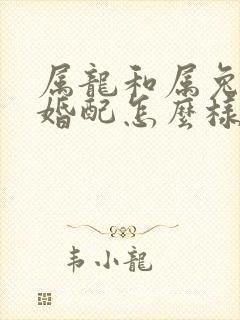 属龍和属兔
婚配怎麼樣
韦小龍